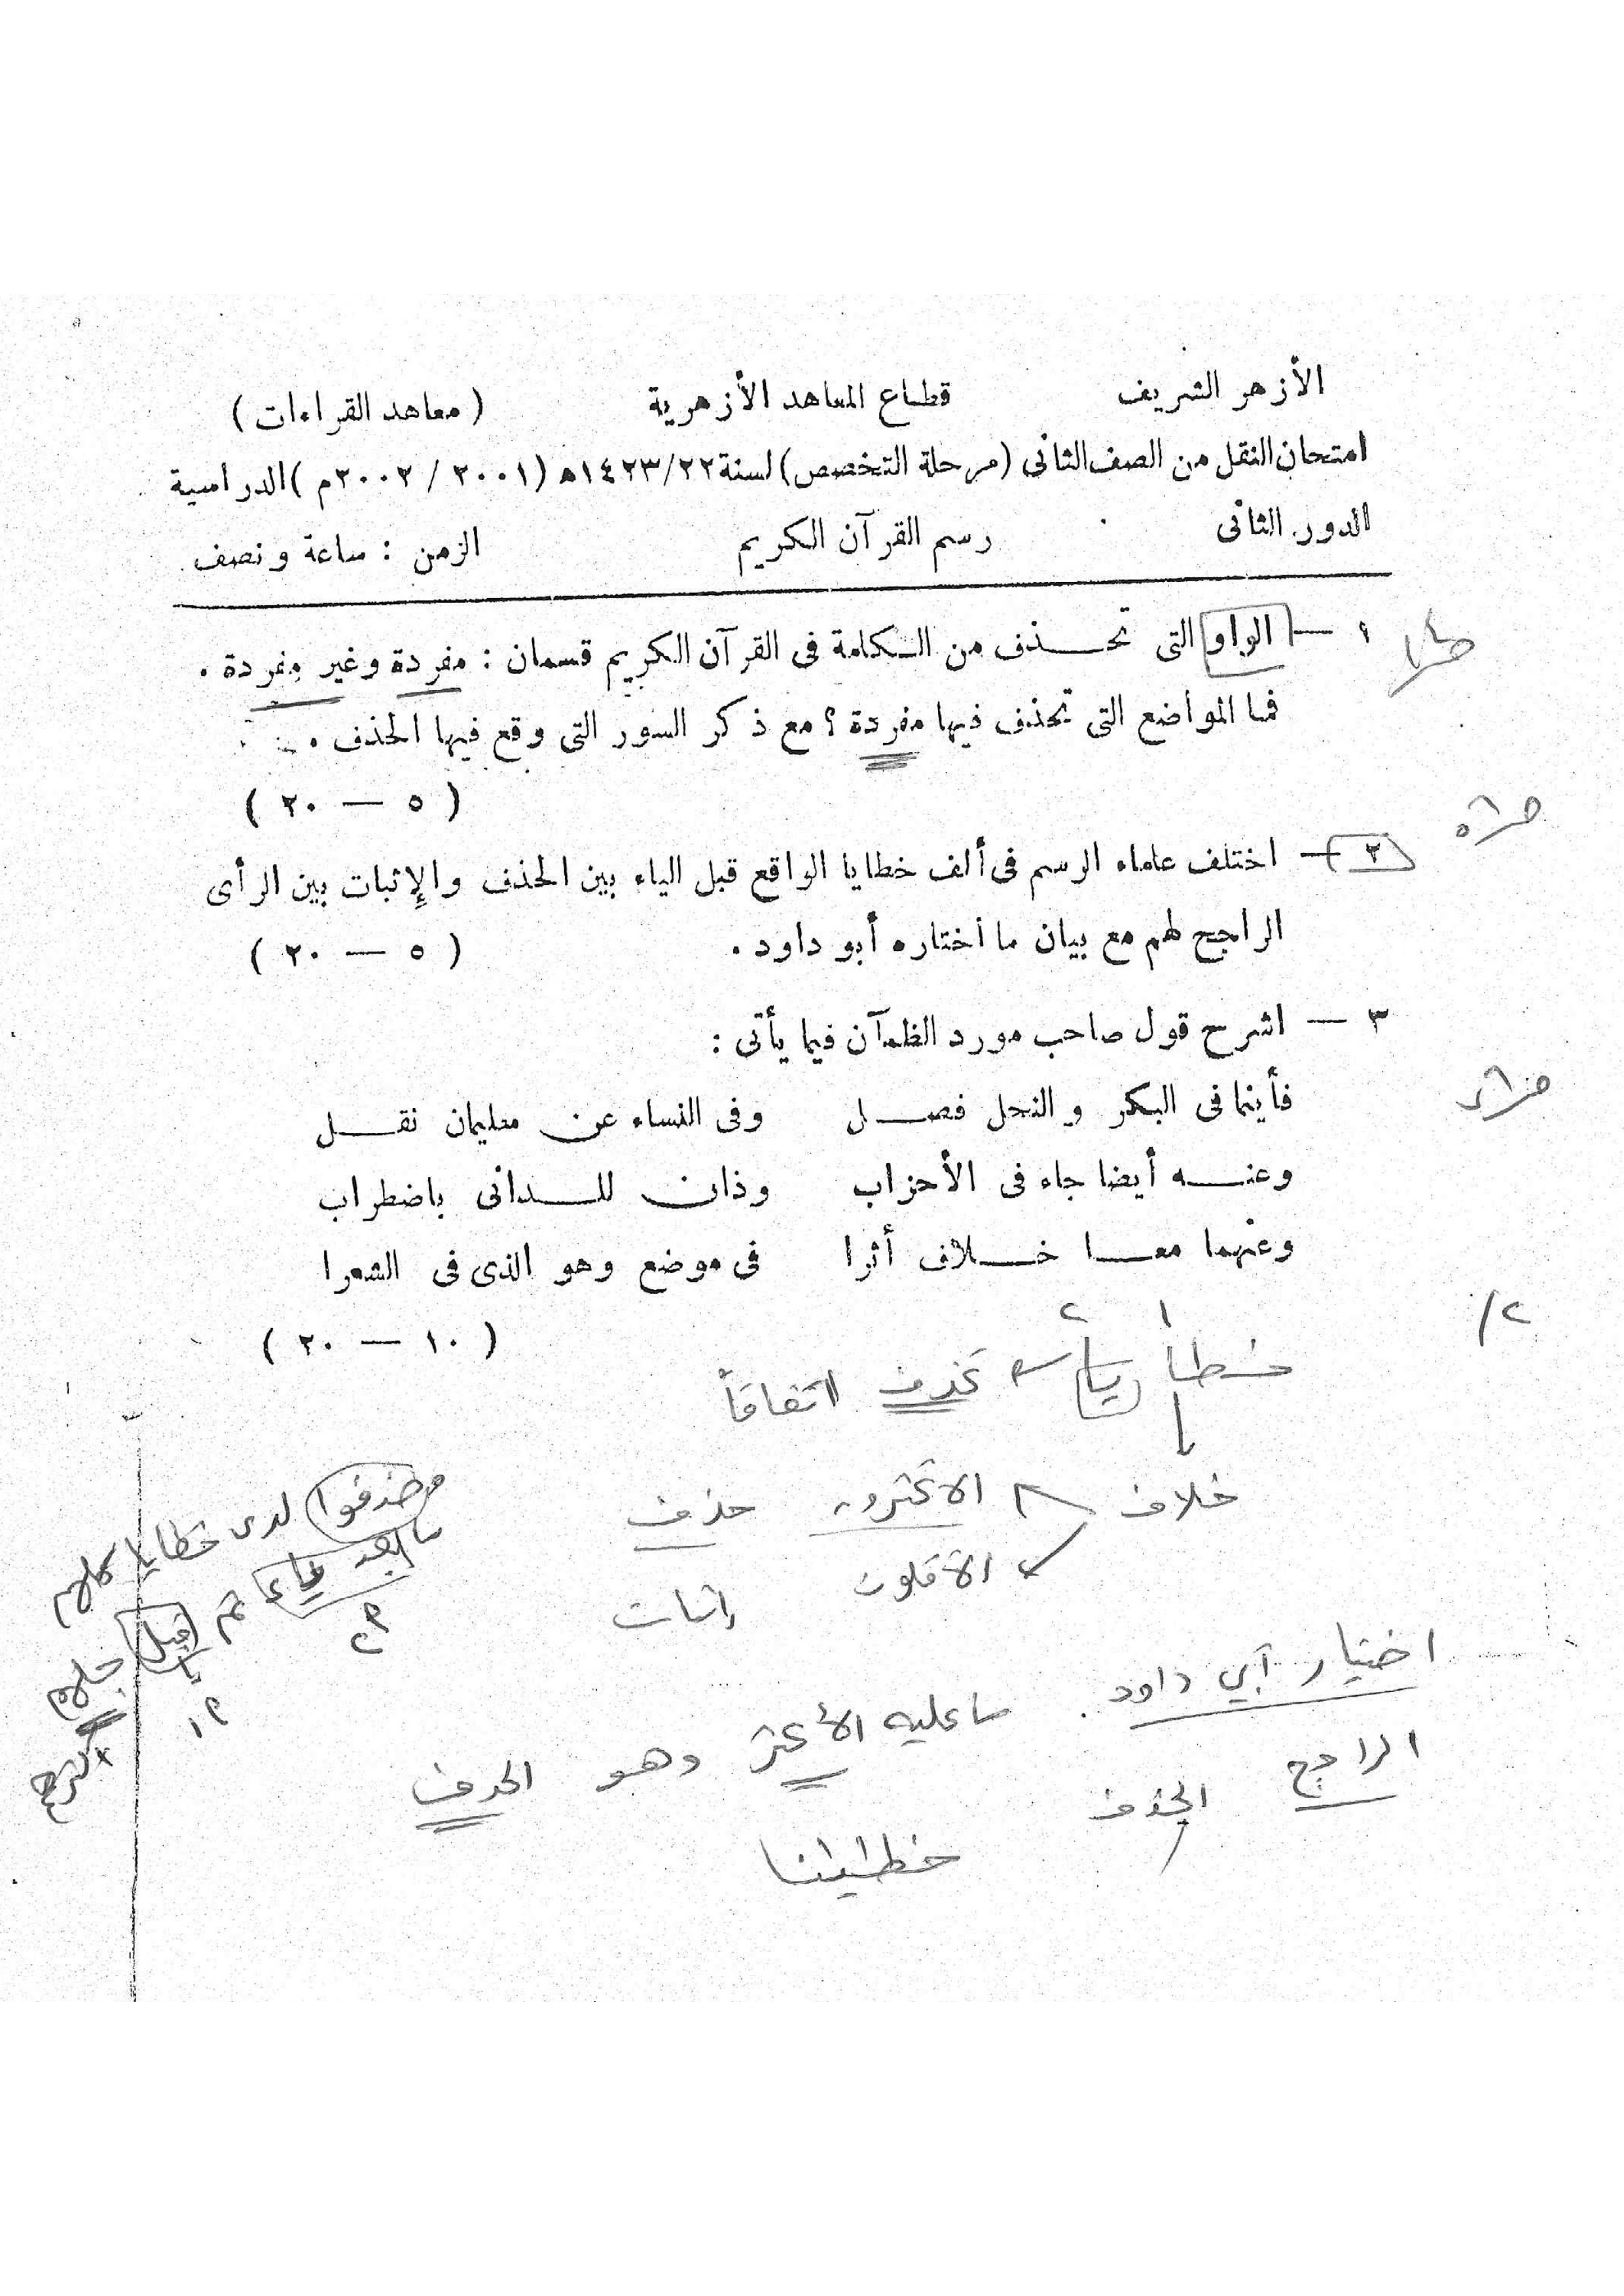 الأزهر الشريف قطاع المعاهد الأزهرية ( معاهد القراءات )
امتحان النقل من الصف الثانى (مرحلة التخصص) لسنة ١٤٢٣/٢٢ه (٢٠٠١ / ٢٠٠٢م) الدراسية
الدور الثانى رسم القرآن الكريم الزمن : ساعة ونصف
١ — الواو التى تحذف من الكلمة فى القرآن الكريم قسمان : مفردة وغير مفردة .
فما المواضع التى تحذف فيها مفردة ؟ مع ذكر السور التى وقع فيها الحذف .
( ٥ — ٢٠ )
٢ — اختلف علماء الرسم فى ألف خطايا الواقع قبل الياء بين الحذف والإثبات بين الرأى
الراجح لهم مع بيان ما اختاره أبو داود .
( ٥ — ٢٠ )
٣ — اشرح قول صاحب مورد الظمآن فيما يأتى :
فأينما فى البكر والنحل فصل وفى النساء عن سليمان نقل
وعنه أيضا جاء فى الأحزاب وذان للدانى باضطراب
وعنهما معا خلاف أثرا فى موضع وهو الذى فى الشعرا
( ١٠ — ٢٠ )
٢/
١ ٢
خطايا تحذف اتفاقاً
خلاف الاكثرون حذف
الأقلون إثبات
اختيار أبي داود . ما عليه الأكثر وهو الحذف
الراجح الحذف
خطيئنا
وحذفوا لدى خطايا كلهم
ما بعد ياء ثم قبل جلهم
٢
١